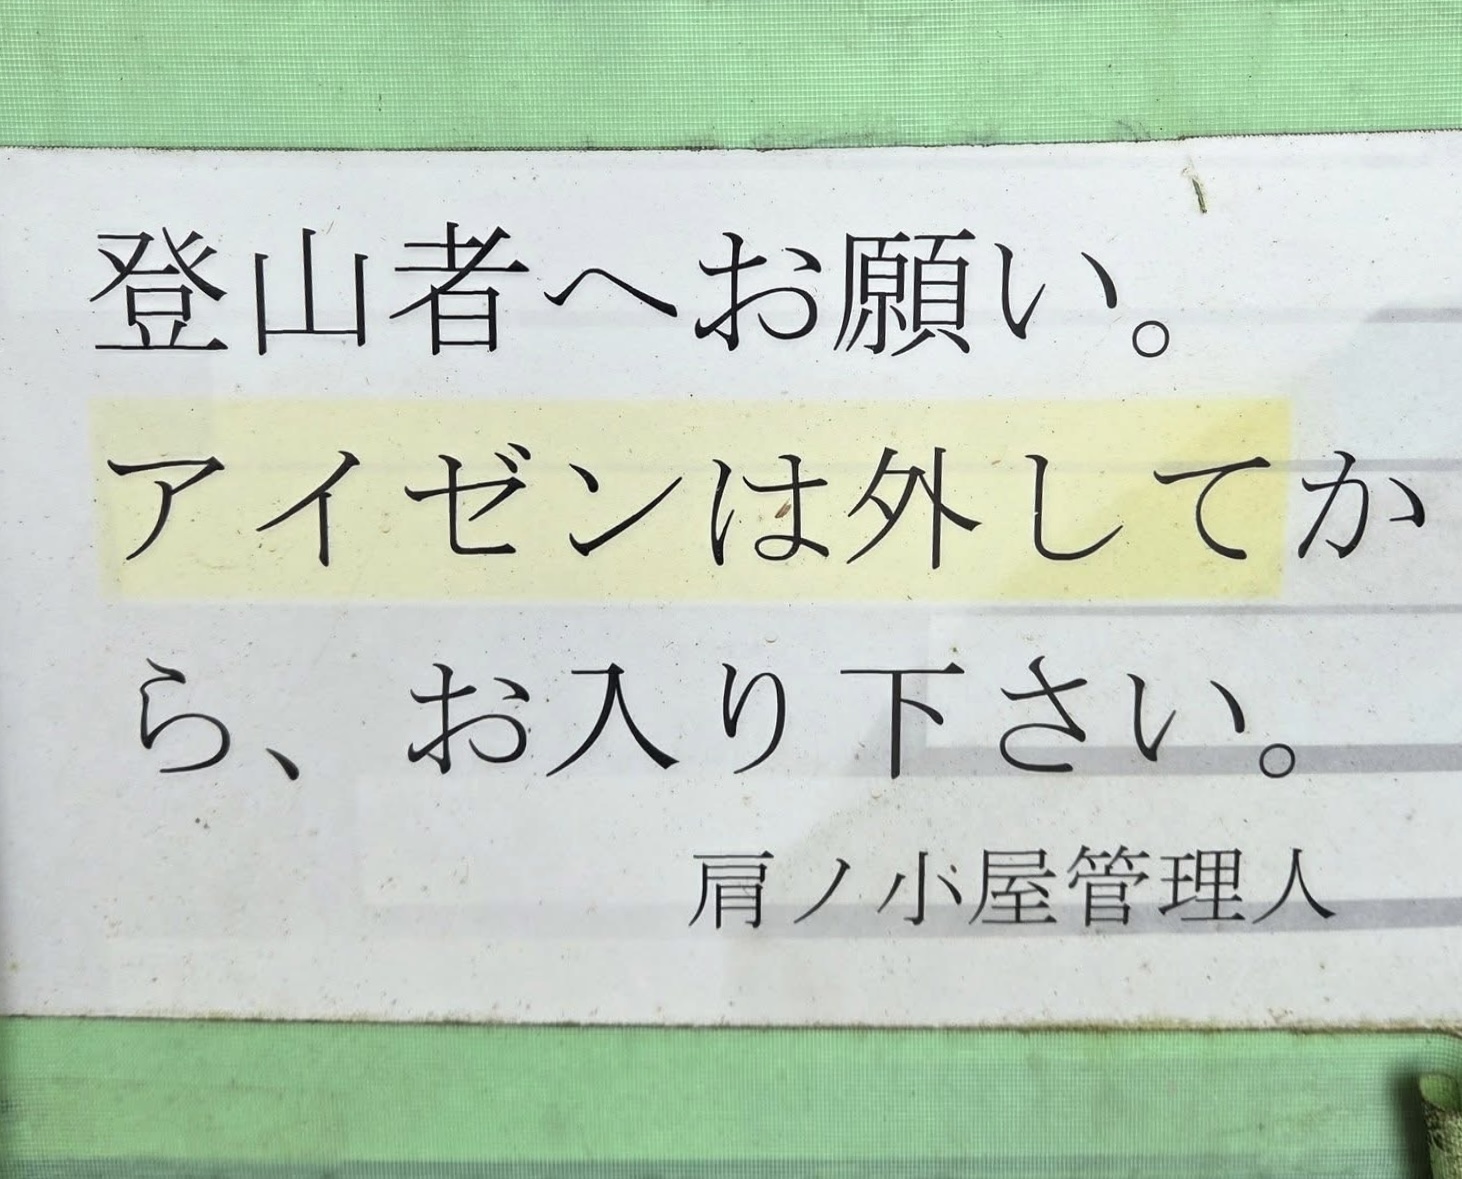 登山者へお願い。
アイゼンは外してか
ら、お入り下さい。
肩ノ小屋管理人